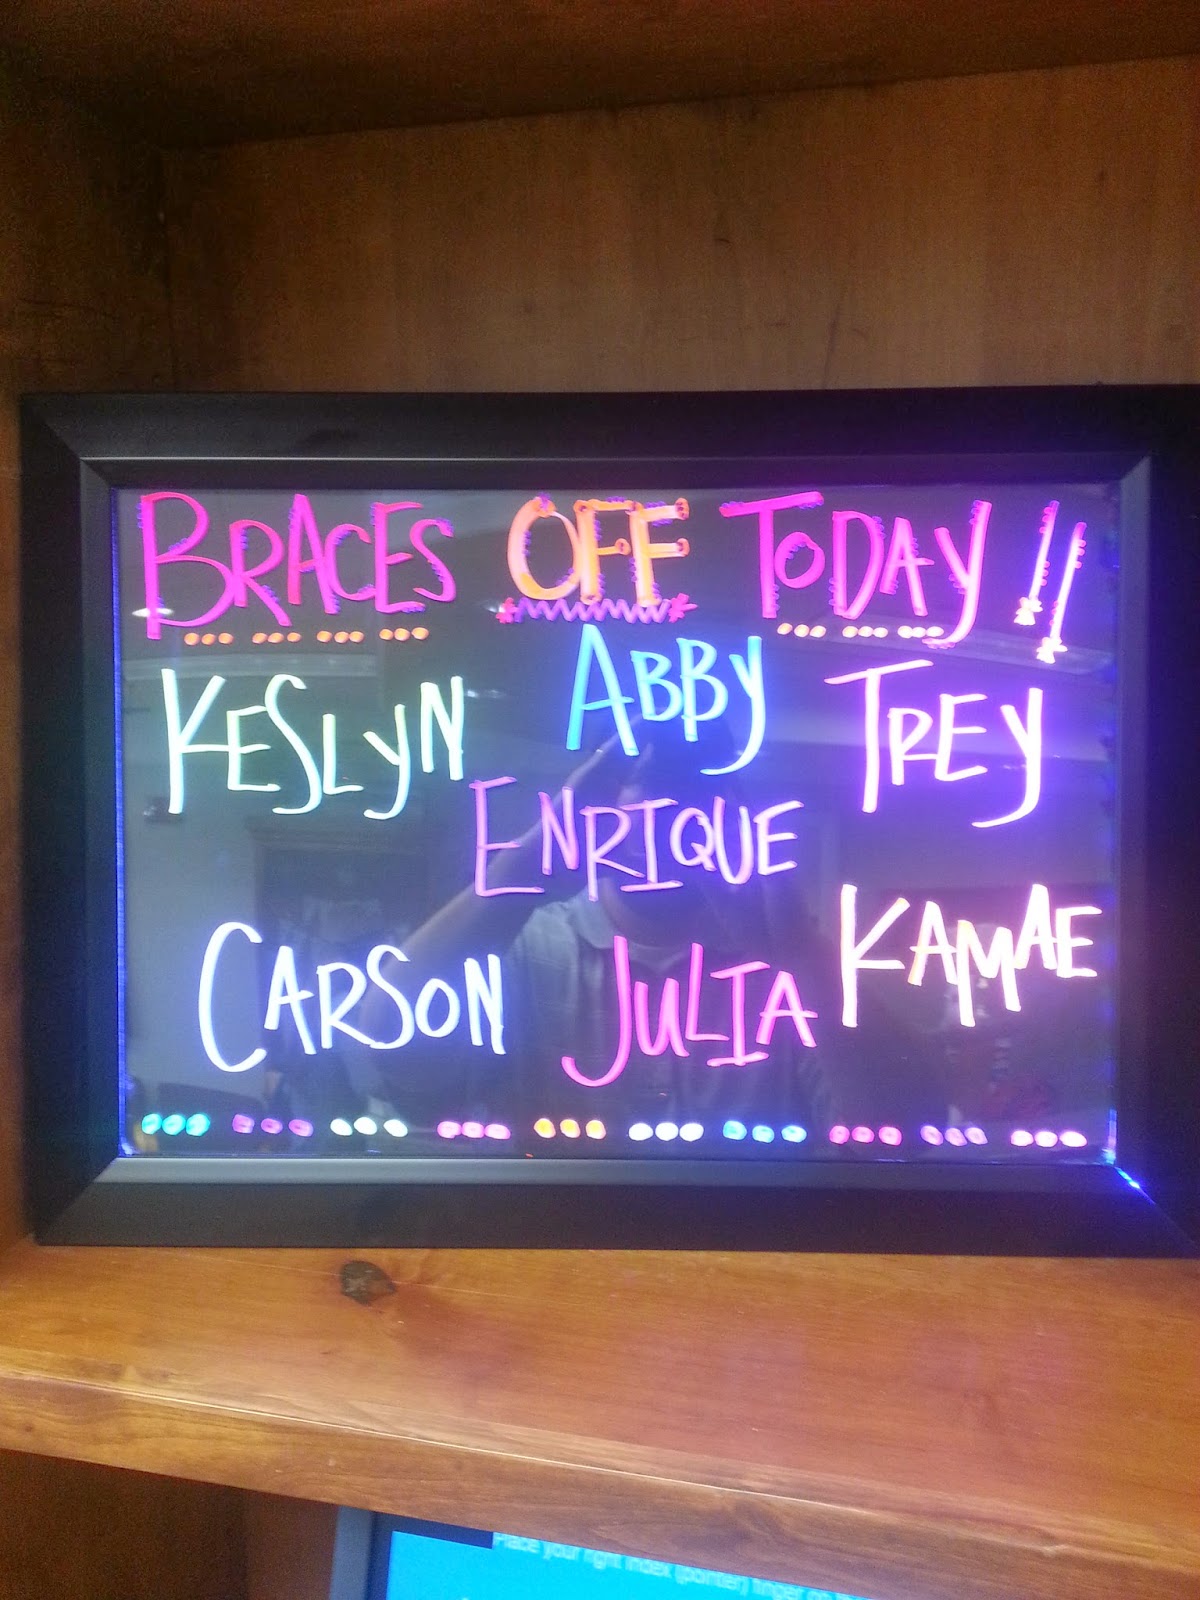 BRACES OFF TODAY!!
KESLYN ABBY TREY
ENRIQUE
CARSON JULIA KAMAE
Place your right index (pointer) finger on